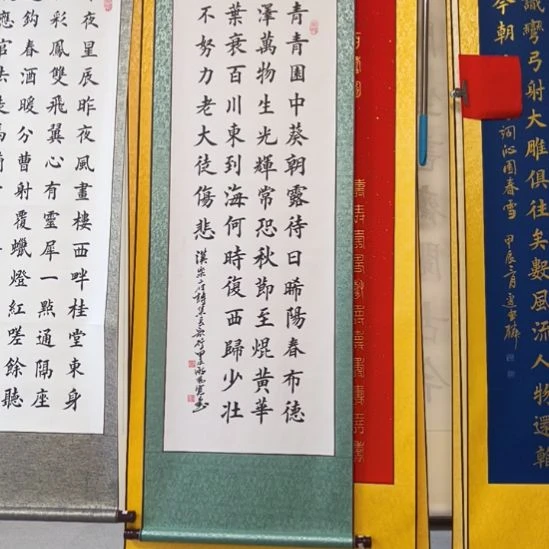 識彎弓射大雕俱往矣數風流人物還
今朝
詞沁園春雪 甲辰三月
青青園中葵朝露待日晞陽春布德
澤萬物生光輝常恐秋節至焜黃華
葉衰百川東到海何時復西歸少壯
不努力老大徒傷悲
夜星辰昨夜風畫樓西畔桂堂東身
彩鳳雙飛翼心有靈犀一點通隔座
鉤春酒暖分曹射覆蠟燈紅嗟餘聽
應官去走馬